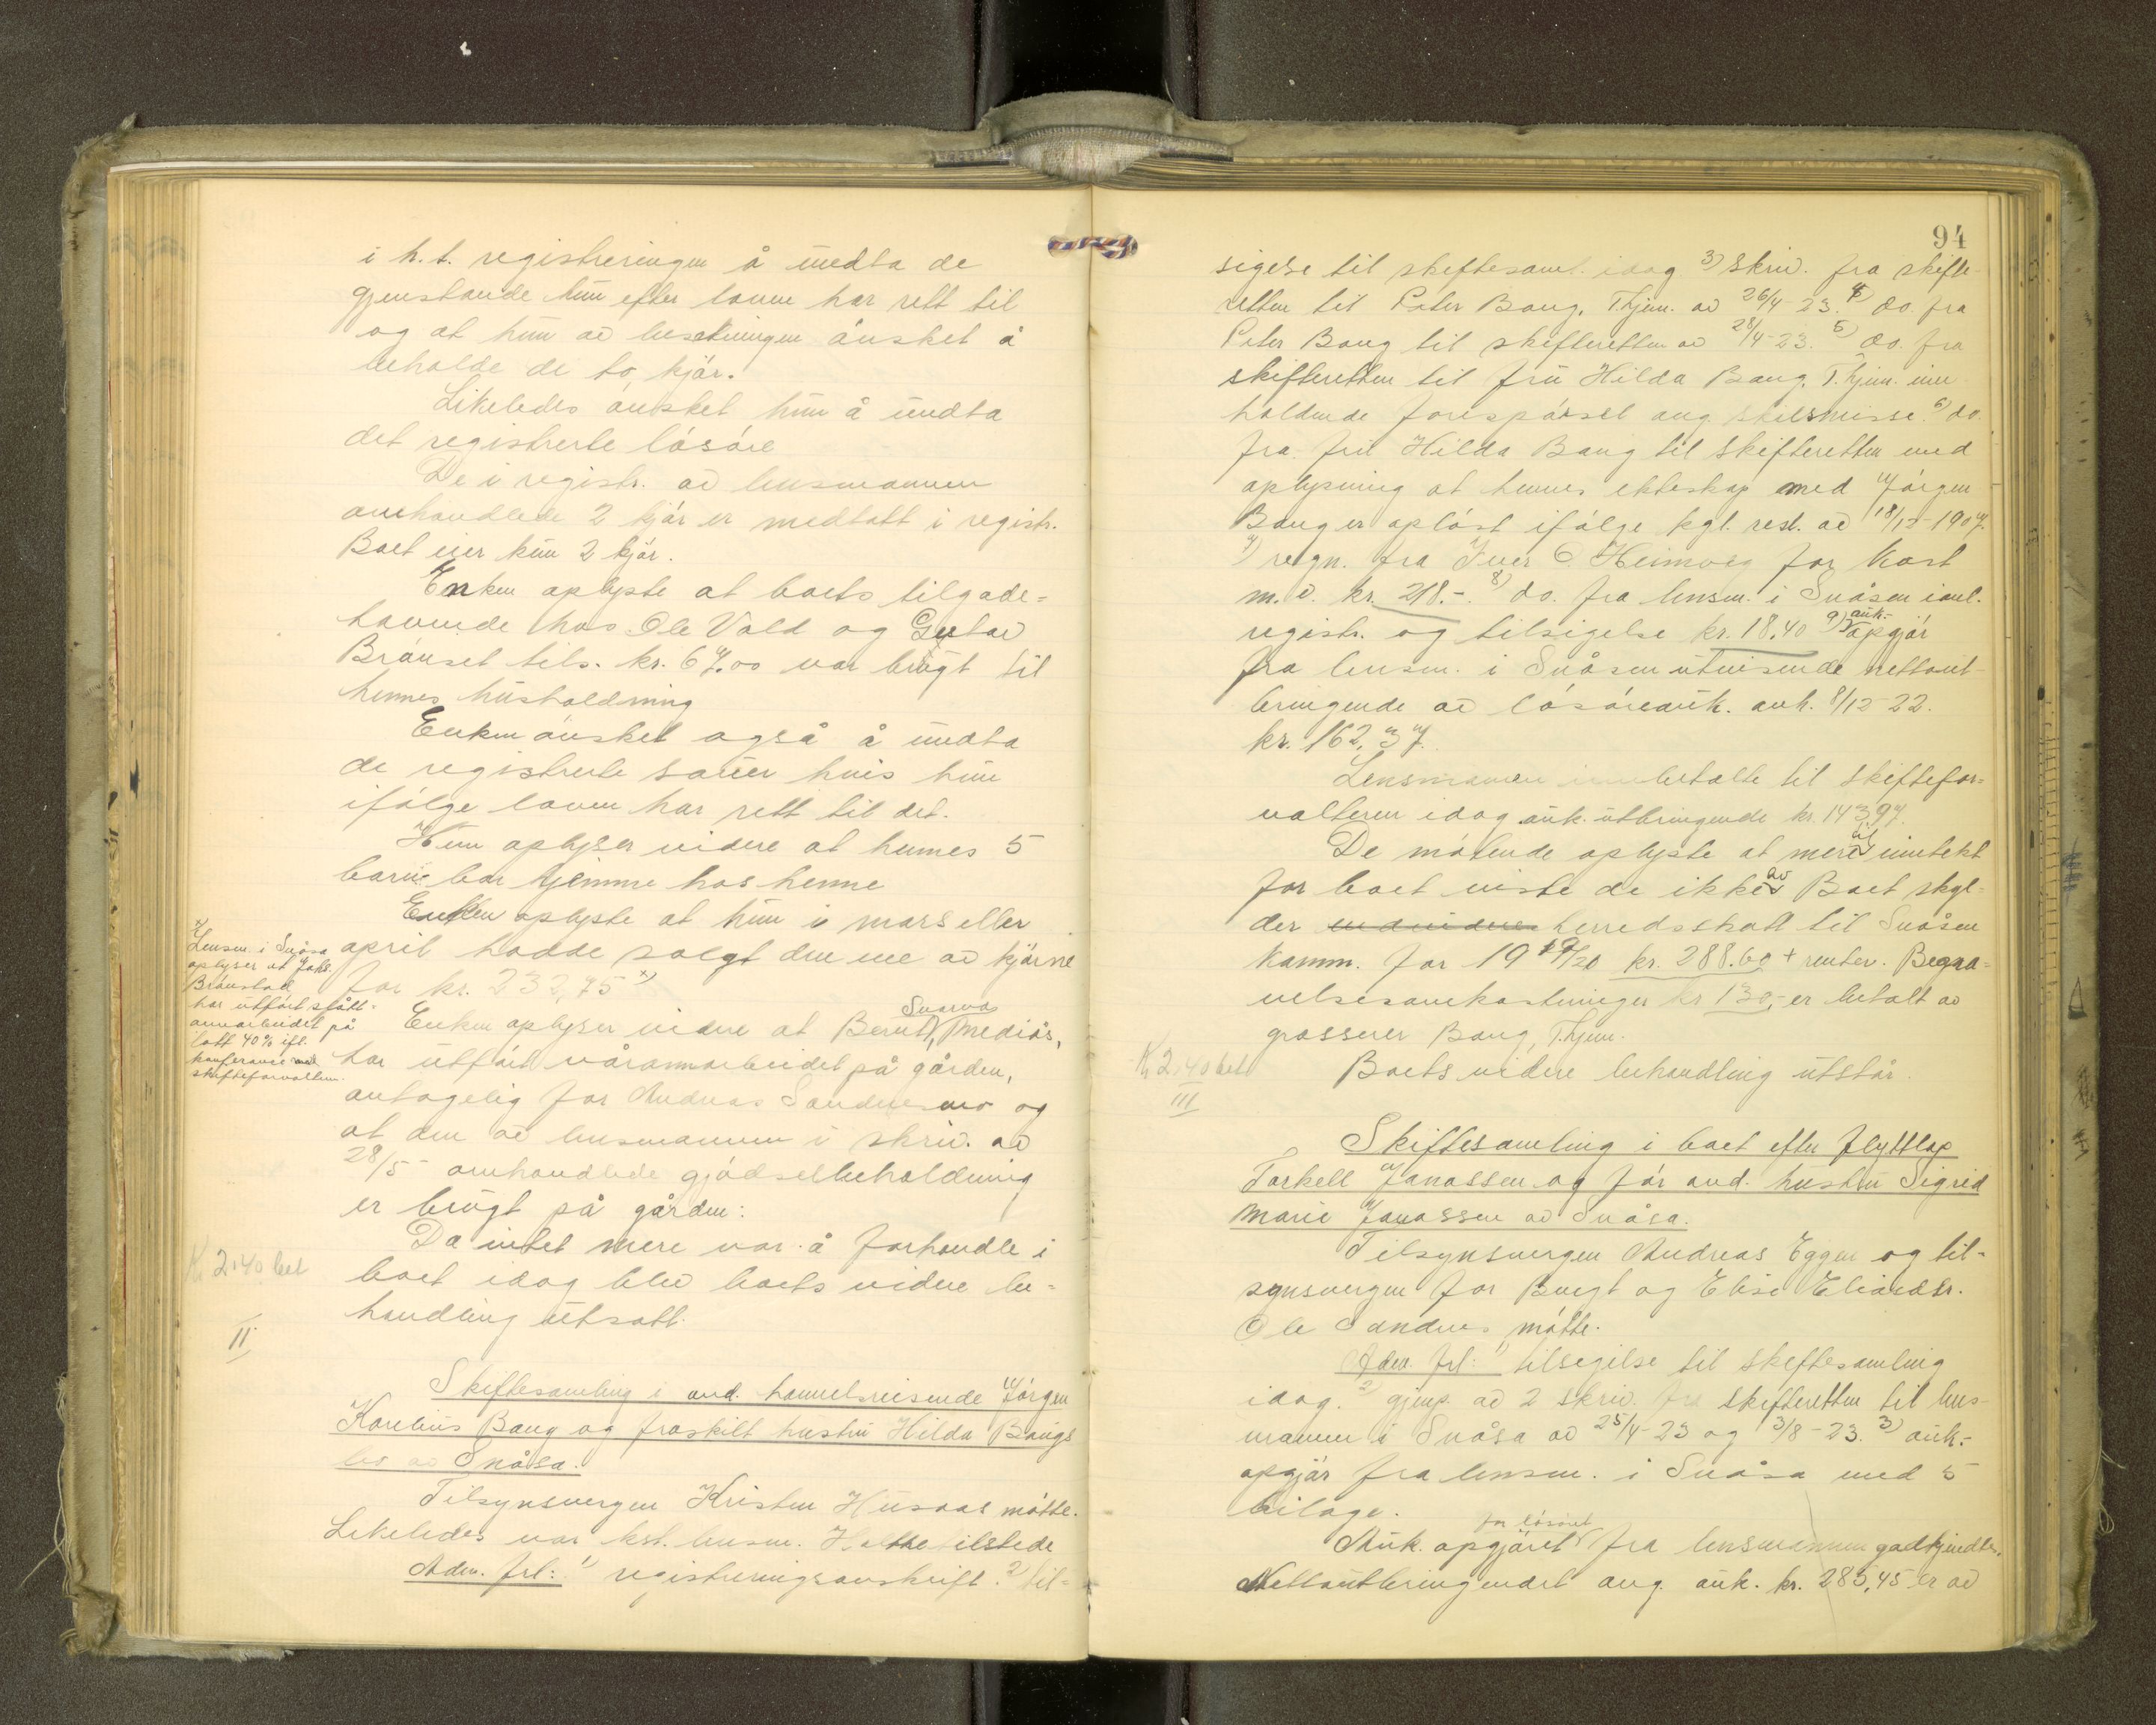 i h.t. registreringen å undta de
gjenstande hun efter loven har rett til
og at hun av besetningen ønsket å
beholde de to kjør.
Likeledes ønsket hun å undta
det registrerte løsøre
De i registr. av lensmannen
omhandlede 2 kjør er medtatt i registr.
Boet eier kun 2 kjør.
Enken oplyste at boets tilgode-
havende hos Ole Vold og Gustav
Brønset tils. kr. 67.00 var brugt til
hennes husholdning
Enken ønsket også å undta
de registrerte sauer hvis hun
ifølge loven har rett til det.
Hun oplyser videre at hennes 5
barn bor hjemme hos henne
Enken oplyste at hun i mars eller
april hadde solgt den ene av kjørne
for kr. 232,75 x)
x) Lensm. i Snåsa
oplyser at Johs.
Brønstad
har utført slått-
onnarbeidet på
lott 40% ifl.
konferanse med
skifteforvalteren.
Enken oplyser videre at Bernt Snorvas, Mediås,
har utført våronnarbeidet på gården,
antagelig for Andreas Sandnesmo og
at den av lensmannen i skriv. av
28/5 omhandlede gjødselbeholdning
er brugt på gården:
Da intet mere var å forhandle i
boet idag blev boets videre be-
handling utsatt.
K 2.40 bet
II
Skiftesamling i avd. handelsreisende Jørgen
Kornelius Bang og fraskilt hustru Hilda Bangs
bo av Snåsa.
Tilsynsvergen Kristen Husaas møtte.
Likeledes var kst. lensm. Holthe tilstede
Adm. frl: 1) registreringsavskrift. 2) til-
94
sigelse til skiftesaml. idag 3) skriv. fra skifte-
retten til Peter Bang, T.hjem. av 26/4-23. 4) do. fra
Peter Bang til skifteretten av 28/4-23. 5) do. fra
skifteretten til fru Hilda Bang, T.hjem. inne-
holdende forespørsel ang. skilsmisse. 6) do.
fra fru Hilda Bang til skifteretten med
oplysning at hennes ekteskap med Jørgen
Bang er opløst ifølge kgl. resl. av 18/12-1907.
7) regn. fra Iver O. Heimveg for kost
m.v. kr. 218.-. 8) do. fra lensm. i Snåsen ianl.
registr. og tilsigelse kr. 18.40 9) auk.-opgjør
fra lensm. i Snåsen utvisende nettout-
bringende av løsøreauk. avh. 8/12 22.
kr. 162,37.
Lensmannen innbetalte til skiftefor-
valteren idag auk. utbringende kr. 143,97.
De møtende oplyste at mere inntekt
for boet viste de ikke av. Boet skyl-
der herredsskatt til Snåsen
komm. for 1919/20 kr. 288.60 + renter. Begra-
velsesomkostninger kr 130,- er betalt av
grosserer Bang, T.hjem.
Boets videre behandling utstår.
K. 2.40 bet
III
Skiftesamling i boet efter flyttlap
Torkell Jonassen og før avd. hustru Sigrid
Marie Jonassen av Snåsa.
Tilsynsvergen Andreas Eggen og til-
synsvergen for Bengt og Elise Eliasdtr.
Ole Sandnes møtte.
Adm. frl: 1) tilsigelse til skiftesamling
idag. 2) gjenp. av 2 skriv. fra skifteretten til lens-
mannen i Snåsa av 25/4-23 og 3/8-23. 3) auk.-
opgjør fra lensm. i Snåsa med 5
bilage.
Auk. opgjøret for løsøret fra lensmannen godkjendtes.
Nettoutbringendet ang. auk. kr. 285,45 er av